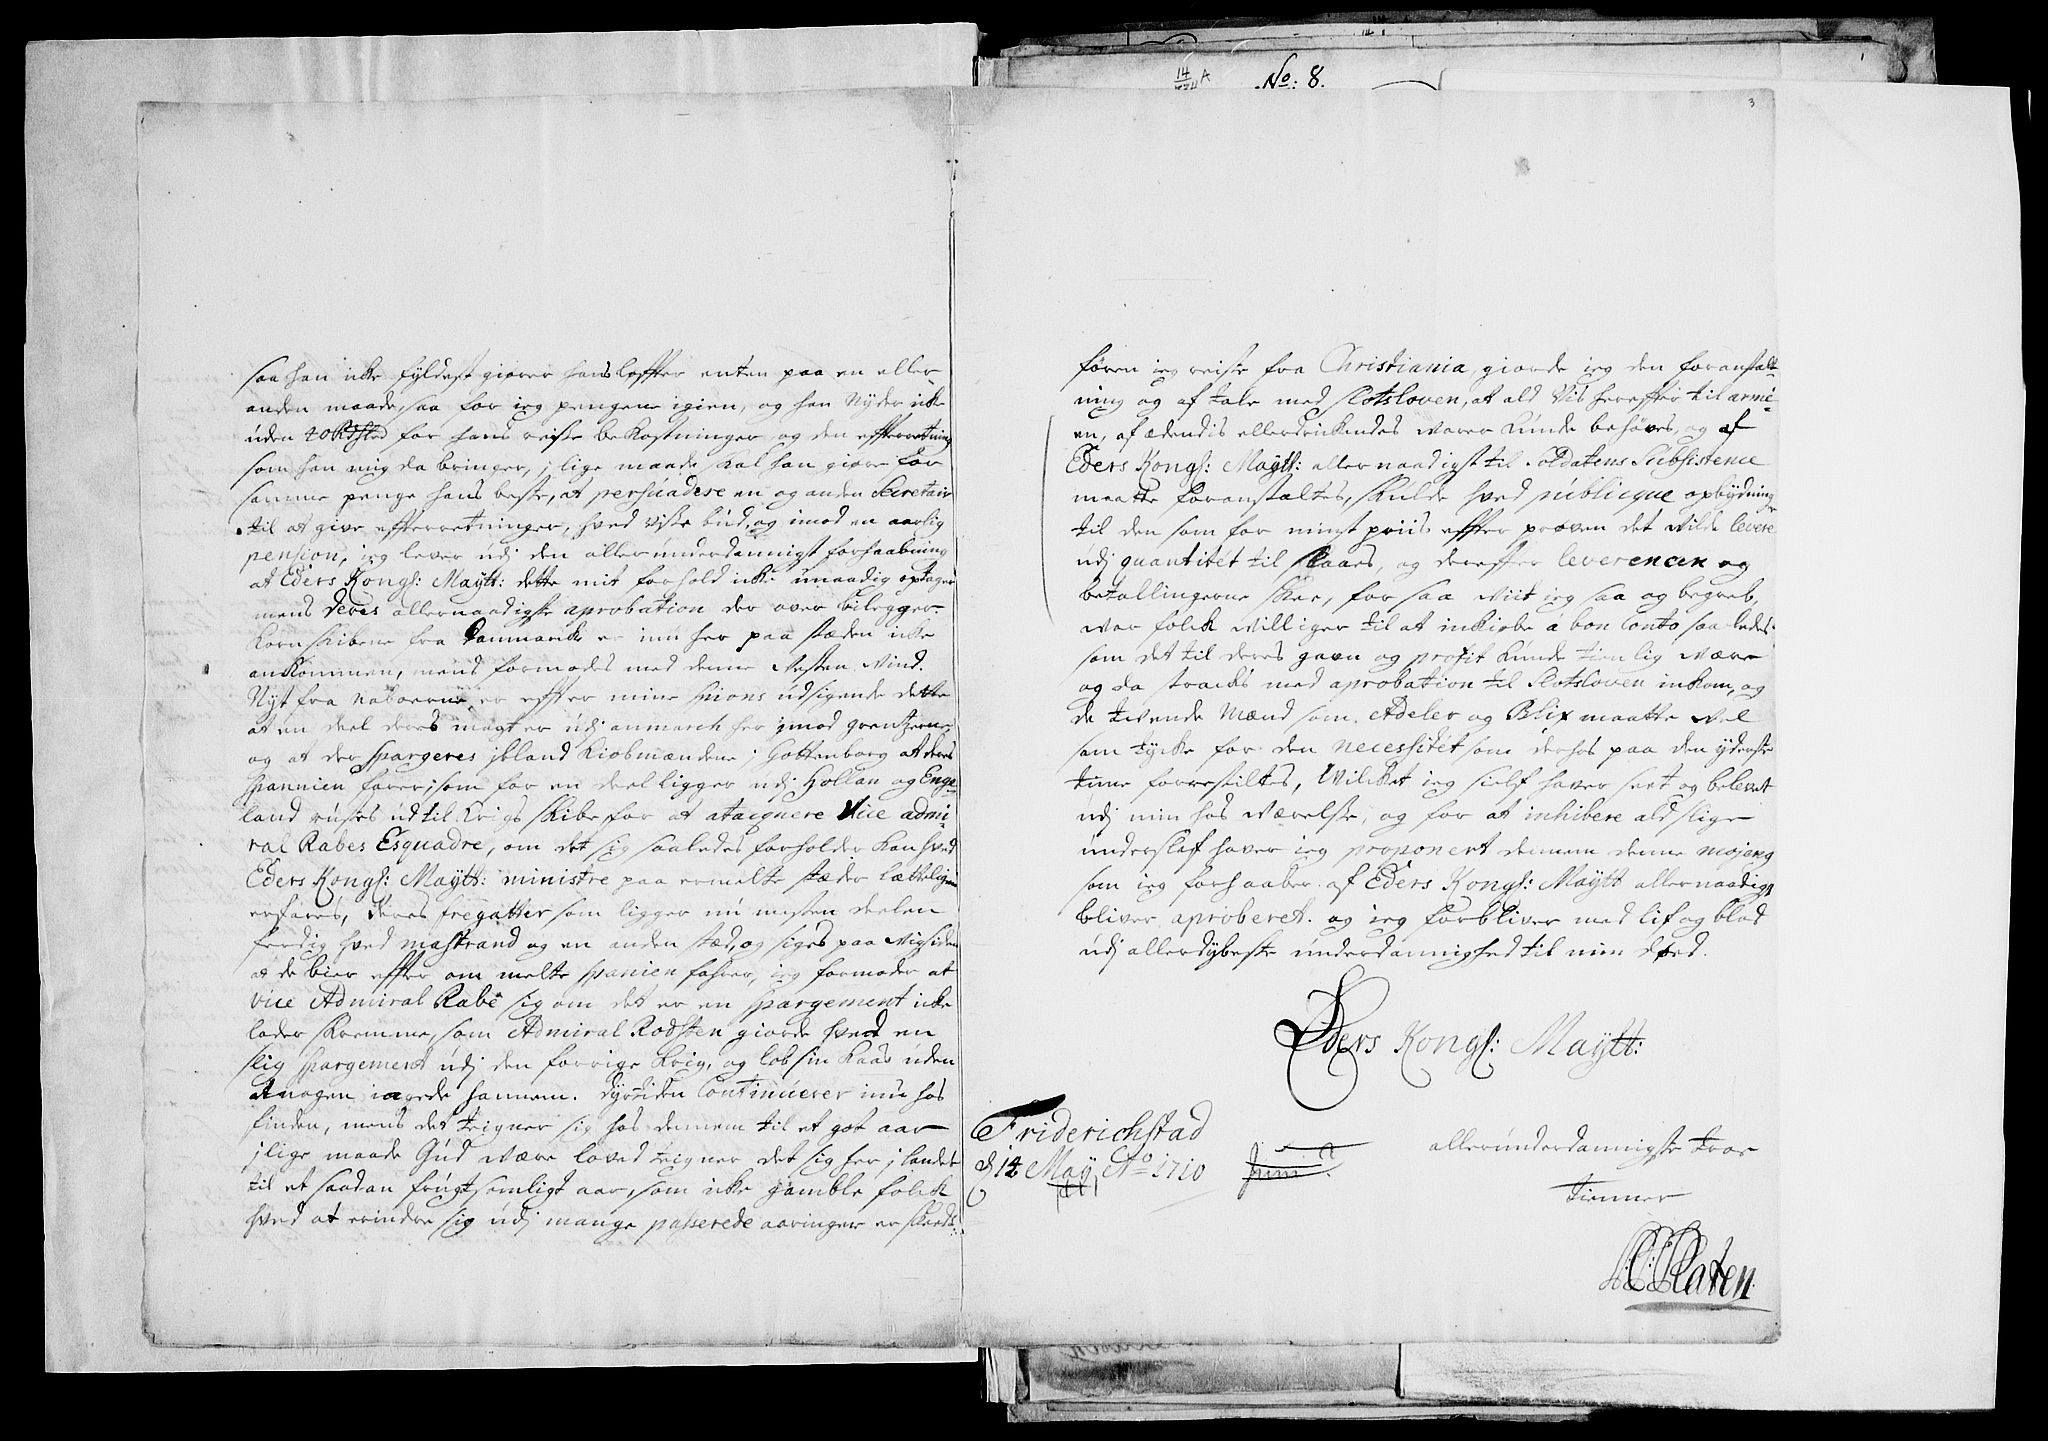 14/5 A
No: 8.
3
saa han icke fyldest giører hans løffter enten paa en eller
anden maade, saa for ieg pengene igien, og han Nyder icke
uden 40 Rd for hans reise bekostninger og den effterretning
som han mig da bringer, j lige maade skal han giøre for
samme penge hans beste, at persuadere en og anden Secretair
til at give effterretninger, hved visse bud, og imod en aarlig
pension, ieg lever udj den allerunderdannigst forhaabning
at Eders Kongl: Maytt: dette mit forhold icke unaadig optager
mens deres allernaadigste aprobation der over bilegger.
Korn skibene fra Danmarck er inu her paa stæden icke
ankommen, mens formodes med denne Vesten Vind.
Nyt fra naboerne, er effter mine spions udsigende dette
at en deel deres magt er udj anmarch her imod grentzerne,
og at der spargeres jbland Kiøbmændene j Gottenborg at deres
spannien farer, som for en deel ligger udj Hollan og Enge-
land rustes ud til Krigs skibe, for at ataquere Vice admi-
ral Rabes Esquadre, om det sig saaledes forholder kan hved
Eders Kongl: Maytt: ministre paa ermelte stæder lætteligen
erfares, deres fregatter som ligger nu mesten deelen
ferdig hved mastrand og en anden stæd, og siges paa Vigsiden
at de bier effter om melte spanien fahrer, ieg formoder at
vice Admiral Rabe sig om det er en spargement icke
lader skremme, som Admiral Rodsten giorde hved en
slig spargement udj den forrige krig, og lob sin Kaas uden
at nogen iagede hannem. dyrtiden Continuerer inu hos
finden, mens det teigner sig hos dennem til et got aar
jlige maade Gud være loved teigner det sig her j landet
til et saadan frugtsomligt aar, som icke gamble folck
hved at erindre sig udj mange passerede aaringer er skeeds.
føren ieg reiste fra Christiania, giorde ieg den foranstalt-
ning og aftale med Slotsloven, at ald Vis hereffter til armé-
en, af ædendis eller drickendes varer kunde behøves, og af
Eders Kongl: Maytt: allernaadigst til Soldatens Subsistence
maatte foranstaltes, skulde hved publicque opbydning
til den som for minst priis effter prøven det vilde levere
udj quantitét til Slaaes, og dereffter leverencen og
betallingerne skee, for saa viit ieg saa og begreb,
var folck villiger til at inkiøbe a bon Conto saaledes
som det til deres gavn og profit kunde tienlig være
og da stracks med aprobation til Slotsloven inkom, og
de tvende Mænd som Adeler og Blix maatte vel
som tycke for den necessitét som derhos paa den yderste
time forrestiltes, Vilcket ieg sielf haver seet og belevet
udj min hos værelse, og for at inhibere ald slige
underslef haver ieg proponert dennem denne mojang
som ieg forhaaber af Eders Kongl: Maytt allernaadigst
bliver aproberet. og ieg forbliver med lif og blod
udj allerdybeste underdannighed til min død.
Eders Kongl: Maytt:
Friderichstad
d 14 May Ao 1710
allerunderdannigste troe
Tienner
Platen